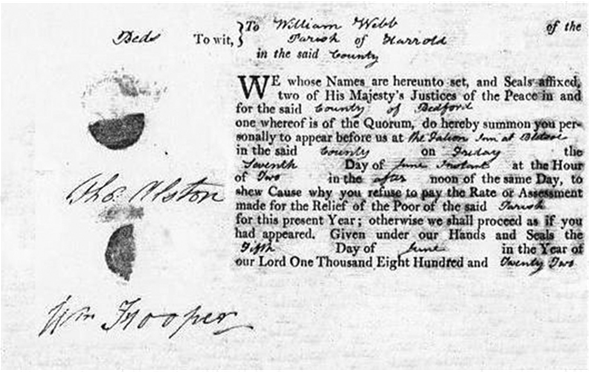 To William Webb of the
Beds To wit, } Parish of Harrold
in the said County
WE whose Names are hereunto set, and Seals affixed,
two of His Majesty's Justices of the Peace in and
for the said County of Bedford
one whereof is of the Quorum, do hereby summon you per-
sonally to appear before us at the Falcon Inn at Bletsoe
in the said County on Friday the
Seventh Day of June Instant at the Hour
of Two in the after noon of the same Day, to
shew Cause why you refuse to pay the Rate or Assessment
made for the Relief of the Poor of the said Parish
for this present Year; otherwise we shall proceed as if you
had appeared. Given under our Hands and Seals the
Fifth Day of June in the Year of
our Lord One Thousand Eight Hundred and Twenty Two
Tho. Alston
Wm Hooper